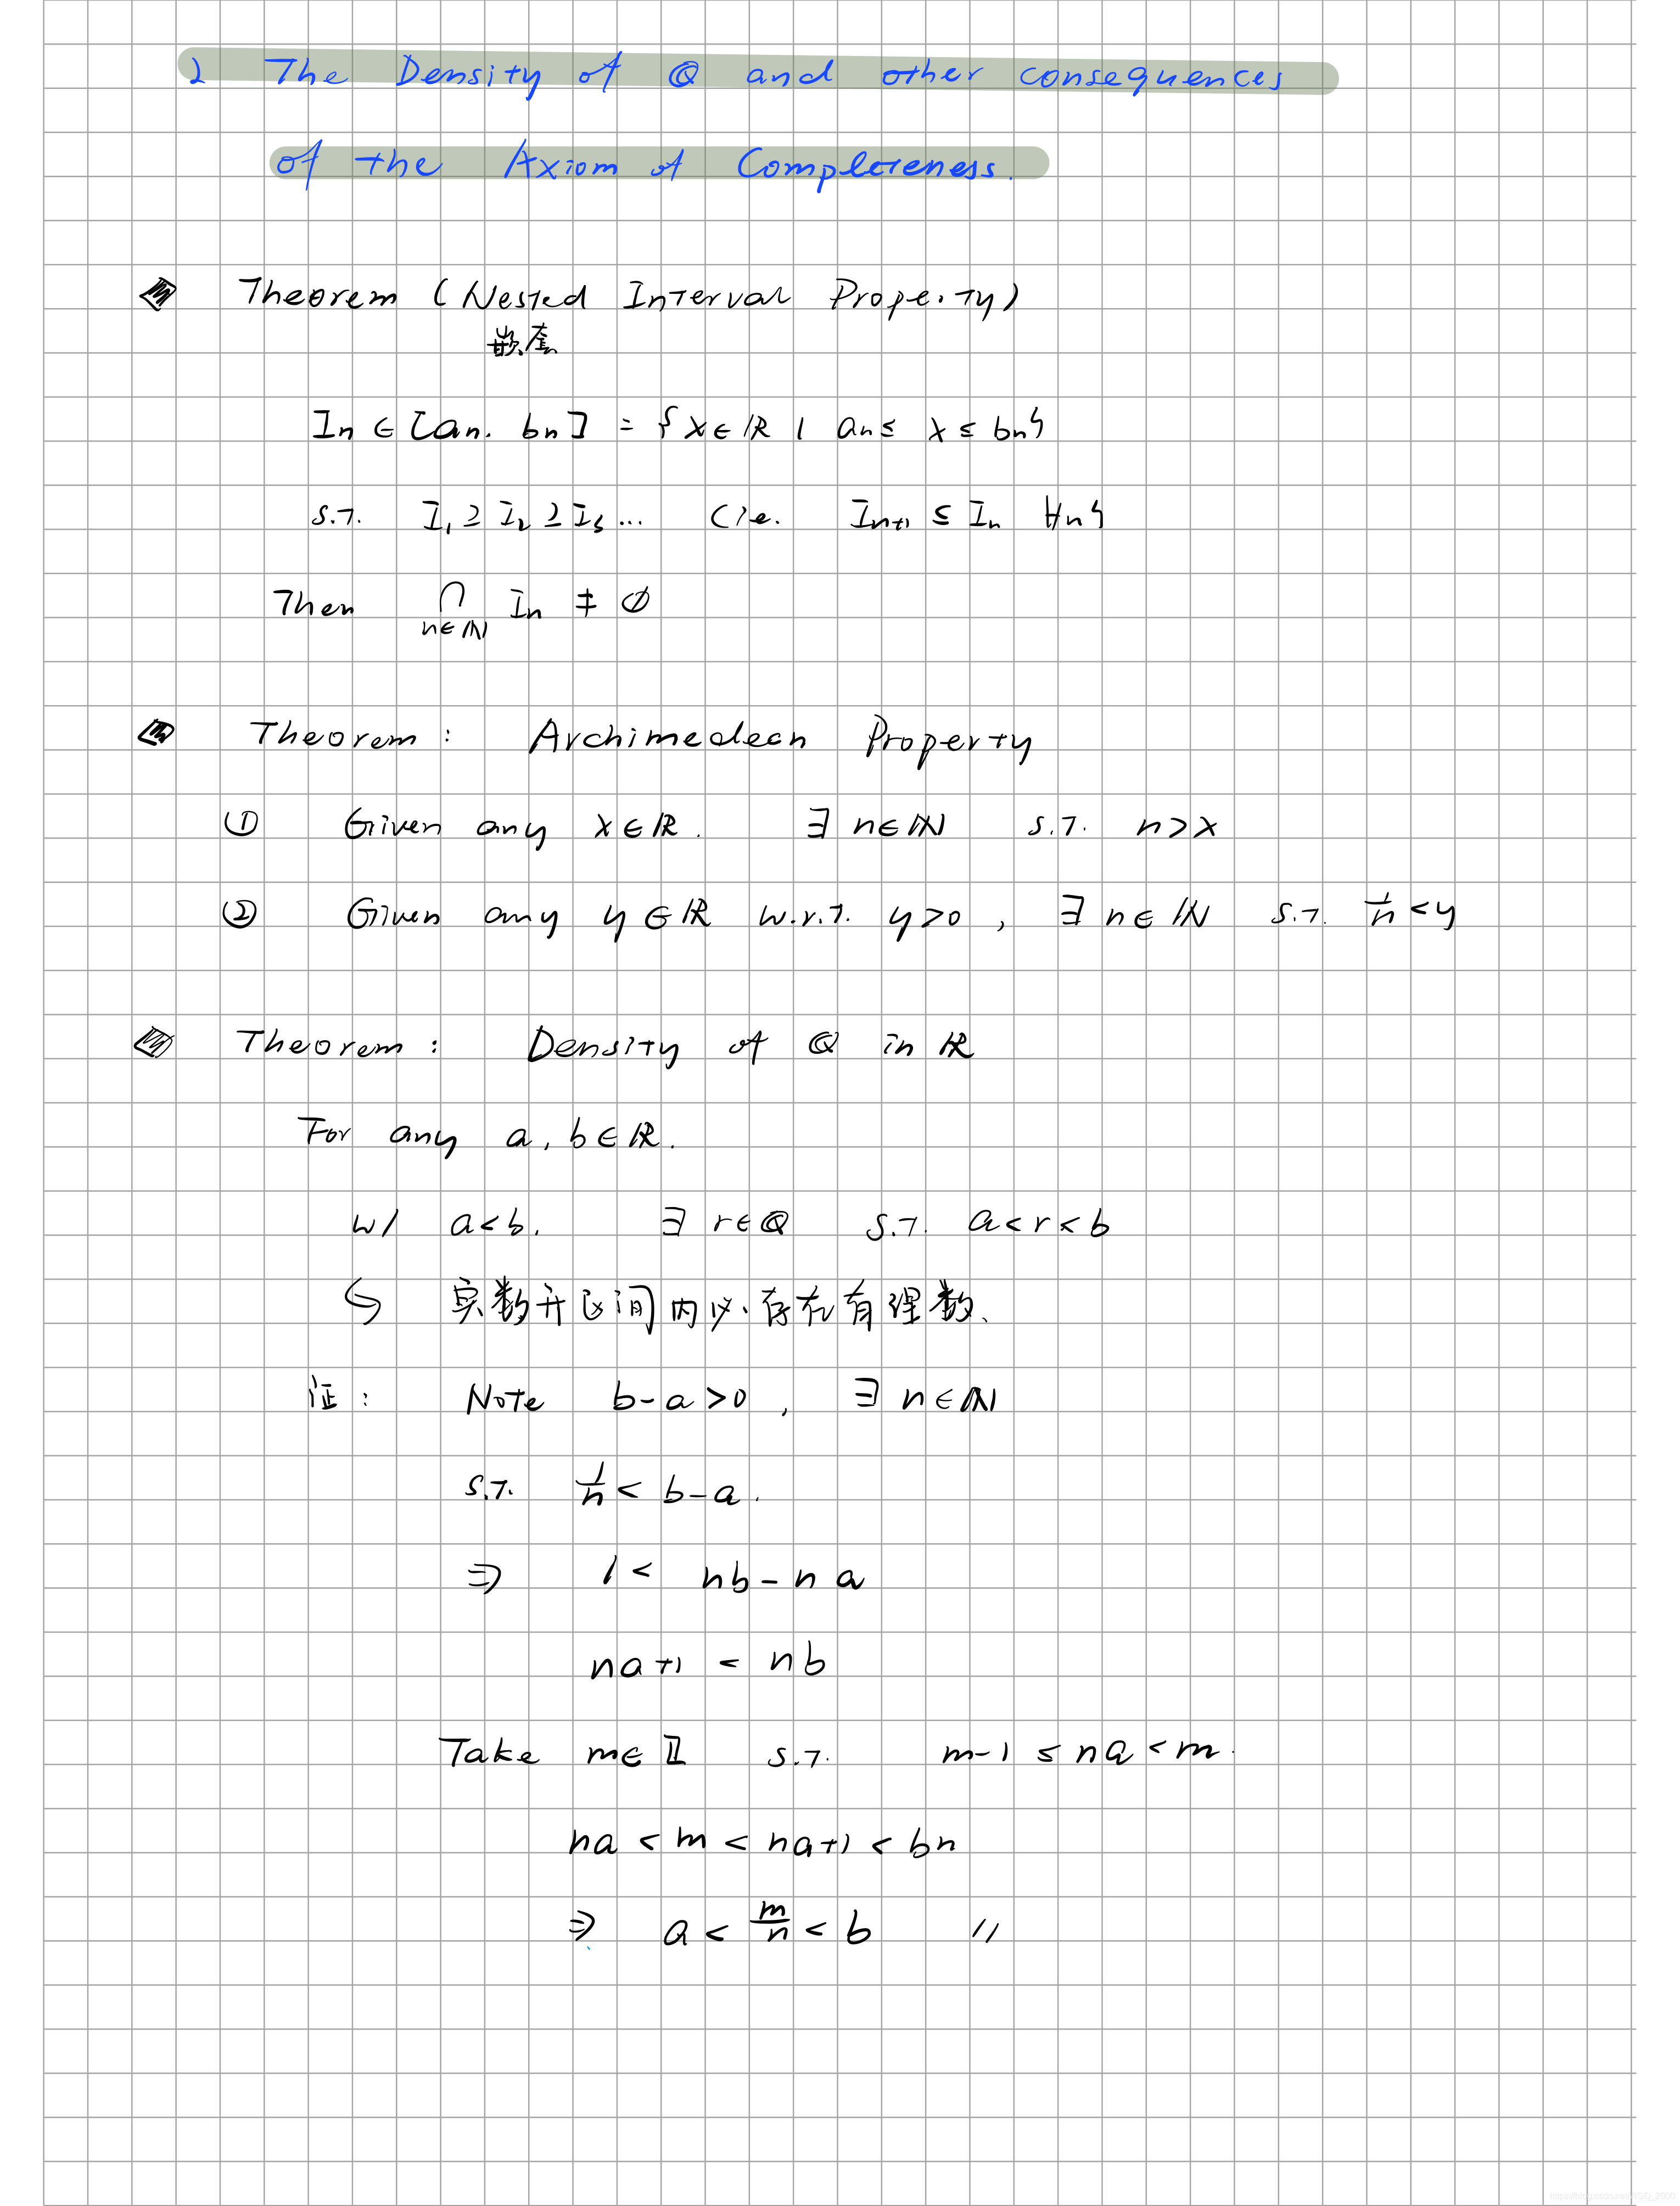 2 The Density of ℚ and other consequences
of the Axiom of Completeness.
Theorem (Nested Interval Property)
嵌套
In ∈ [an. bn] = {x∈ℝ | an ≤ x ≤ bn}
s.t. I₁ ⊇ I₂ ⊇ I₃ ... (i.e. In+1 ⊆ In ∀n}
Then ⋂ In ≠ ∅
n∈ℕ
Theorem: Archimedean Property
① Given any x∈ℝ. ∃ n∈ℕ s.t. n>x
② Given any y∈ℝ w.r.t. y>0, ∃ n∈ℕ s.t. 1/n < y
Theorem: Density of ℚ in ℝ
For any a, b∈ℝ.
w/ a<b. ∃ r∈ℚ s.t. a<r<b
↪ 实数开区间内必存在有理数.
证: Note b-a>0, ∃ n∈ℕ
s.t. 1/n < b-a.
⇒ 1 < nb-na
na+1 < nb
Take m∈ℤ s.t. m-1 ≤ na < m.
na < m < na+1 < bn
⇒ a < m/n < b //